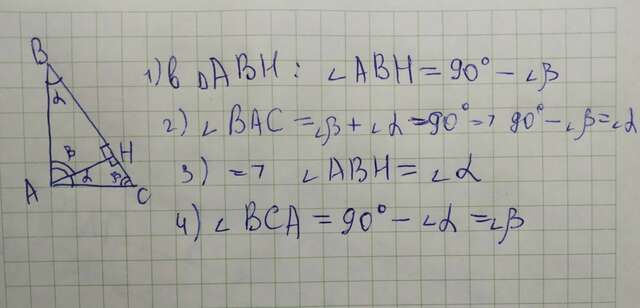 B
α
β
H
α
β
A
C
1) в △ABH: ∠ABH = 90° - ∠β
2) ∠BAC = ∠β + ∠α = 90° => 90° - ∠β = ∠α
3) => ∠ABH = ∠α
4) ∠BCA = 90° - ∠α = ∠β